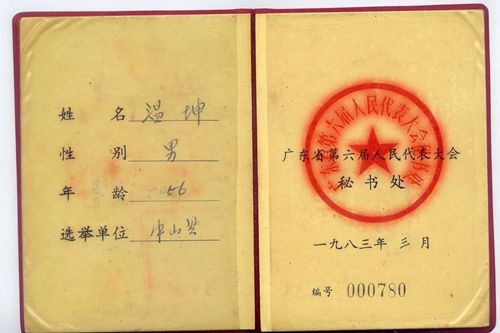 姓 名 温 坤
性 别 男
年 龄 56
选举单位 中山县
广东省第六届人民代表大会秘书处
广东省第六届人民代表大会
秘书处
一九八三年 三 月
编号 000780